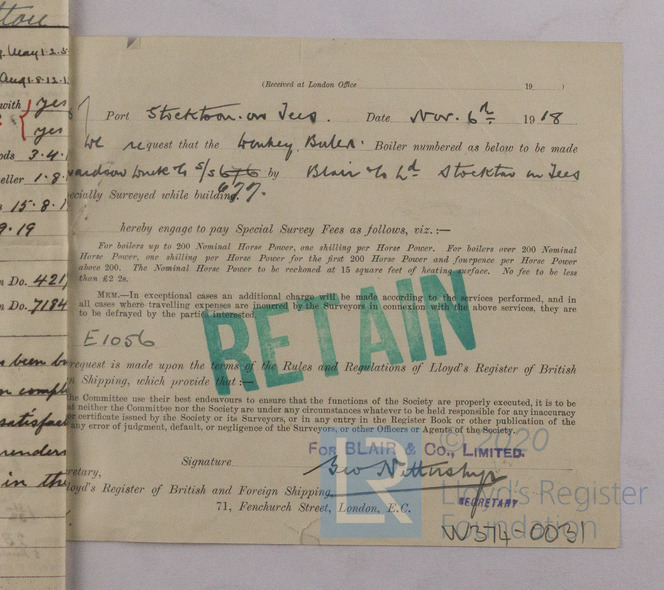 (Received at London Office 19 )
Port Stockton-on-Tees. Date Nov. 6th 1918
We request that the Donkey Boiler. Boiler numbered as below to be made
S/S 676 by Blair & Co Ld Stockton on Tees
ecially Surveyed while building. 677.
hereby engage to pay Special Survey Fees as follows, viz.:—
For boilers up to 200 Nominal Horse Power, one shilling per Horse Power. For boilers over 200 Nominal
Horse Power, one shilling per Horse Power for the first 200 Horse Power and fourpence per Horse Power
above 200. The Nominal Horse Power to be reckoned at 15 square feet of heating surface. No fee to be less
than £2 2s.
MEM.—In exceptional cases an additional charge will be made according to the services performed, and in
all cases where travelling expenses are incurred by the Surveyors in connexion with the above services, they are
to be defrayed by the parties interested.
RETAIN
E1056
request is made upon the terms of the Rules and Regulations of Lloyd's Register of British
n Shipping, which provide that:—
he Committee use their best endeavours to ensure that the functions of the Society are properly executed, it is to be
at neither the Committee nor the Society are under any circumstances whatever to be held responsible for any inaccuracy
or certificate issued by the Society or its Surveyors, or in any entry in the Register Book or other publication of the
any error of judgment, default, or negligence of the Surveyors, or other Officers or Agents of the Society.
© 2020
FOR BLAIR & CO., LIMITED.
Signature
SECRETARY
retary,
loyd's Register of British and Foreign Shipping,
71, Fenchurch Street, London, E.C.
LR
Lloyd's Register
Foundation
W374-0031
yes
yes
3.4.
eller 1.8.
15.8.1
9.19
n Do. 421
n Do. 7184
s been b
n compl
satisfac
renders
in the